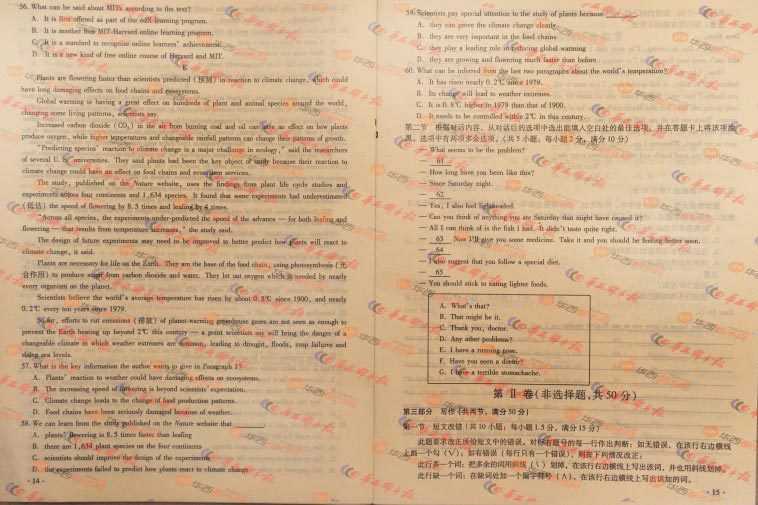 56. What can be said about MITx according to the text?
A. It is first offered as part of the edX learning program.
B. It is another free MIT-Harvard online learning program.
C. It is a standard to recognize online learners' achievement.
D. It is a new kind of free online course of Harvard and MIT.
E
Plants are flowering faster than scientists predicted (预测) in reaction to climate change, which could
have long damaging effects on food chains and ecosystems.
Global warming is having a great effect on hundreds of plant and animal species around the world,
changing some living patterns, scientists say.
Increased carbon dioxide (CO₂) in the air from burning coal and oil can have an effect on how plants
produce oxygen, while higher temperatures and changeable rainfall patterns can change their patterns of growth.
"Predicting species' reaction to climate change is a major challenge in ecology," said the researchers
of several U. S. universities. They said plants had been the key object of study because their reaction to
climate change could have an effect on food chains and ecosystem services.
The study, published on the Nature website, uses the findings from plant life cycle studies and
experiments across four continents and 1,634 species. It found that some experiments had underestimated
(低估) the speed of flowering by 8.5 times and leafing by 4 times.
"Across all species, the experiments under-predicted the speed of the advance — for both leafing and
flowering — that results from temperature increases," the study said.
The design of future experiments may need to be improved to better predict how plants will react to
climate change, it said.
Plants are necessary for life on the Earth. They are the base of the food chain, using photosynthesis (光
合作用) to produce sugar from carbon dioxide and water. They let out oxygen which is needed by nearly
every organism on the planet.
Scientists believe the world's average temperature has risen by about 0.8℃ since 1900, and nearly
0.2℃ every ten years since 1979.
So far, efforts to cut emissions (排放) of planet-warming greenhouse gases are not seen as enough to
prevent the Earth heating up beyond 2℃ this century — a point scientists say will bring the danger of a
changeable climate in which weather extremes are common, leading to drought, floods, crop failures and
rising sea levels.
57. What is the key information the author wants to give in Paragraph 1?
A. Plants' reaction to weather could have damaging effects on ecosystems.
B. The increasing speed of flowering is beyond scientists' expectation.
C. Climate change leads to the change of food production patterns.
D. Food chains have been seriously damaged because of weather.
58. We can learn from the study published on the Nature website that ______.
A. plants' flowering is 8.5 times faster than leafing
B. there are 1,634 plant species on the four continents
C. scientists should improve the design of the experiments
D. the experiments failed to predict how plants react to climate change
· 14 ·
59. Scientists pay special attention to the study of plants because ______.
A. they can prove the climate change clearly
B. they are very important in the food chains
C. they play a leading role in reducing global warming
D. they are growing and flowering much faster than before
60. What can be inferred from the last two paragraphs about the world's temperature?
A. It has risen nearly 0.2℃ since 1979.
B. Its change will lead to weather extremes.
C. It is 0.8℃ higher in 1979 than that of 1900.
D. It needs to be controlled within 2℃ in this century.
第二节 根据对话内容，从对话后的选项中选出能填入空白处的最佳选项，并在答题卡上将该项涂
黑。选项中有两项多余选项。(共5小题；每小题2分，满分10分)
— What seems to be the problem?
— 61
— How long have you been like this?
— Since Saturday night.
— 62
— Yes, I also feel lightheaded.
— Can you think of anything you ate Saturday that might have caused it?
— All I can think of is the fish I had. It didn't taste quite right.
— 63 Now I'll give you some medicine. Take it and you should be feeling better soon.
— 64
— I also suggest that you follow a special diet.
— 65
— You should stick to eating lighter foods.
A. What's that?
B. That might be it.
C. Thank you, doctor.
D. Any other problems?
E. I have a running nose.
F. Have you seen a doctor?
G. I have a terrible stomachache.
第Ⅱ卷(非选择题,共50分)
第三部分 写作(共两节，满分50分)
第一节 短文改错(共10小题；每小题1.5分，满分15分)
此题要求改正所给短文中的错误。对标有题号的每一行作出判断：如无错误，在该行右边横线
上画一个勾(√)；如有错误(每行只有一个错误)，则按下列情况改正：
此行多一个词：把多余的词用斜线(\)划掉，在该行右边横线上写出该词，并也用斜线划掉。
此行缺一个词：在缺词处加一个漏字符号(∧)，在该行右边横线上写出该加的词。
· 15 ·